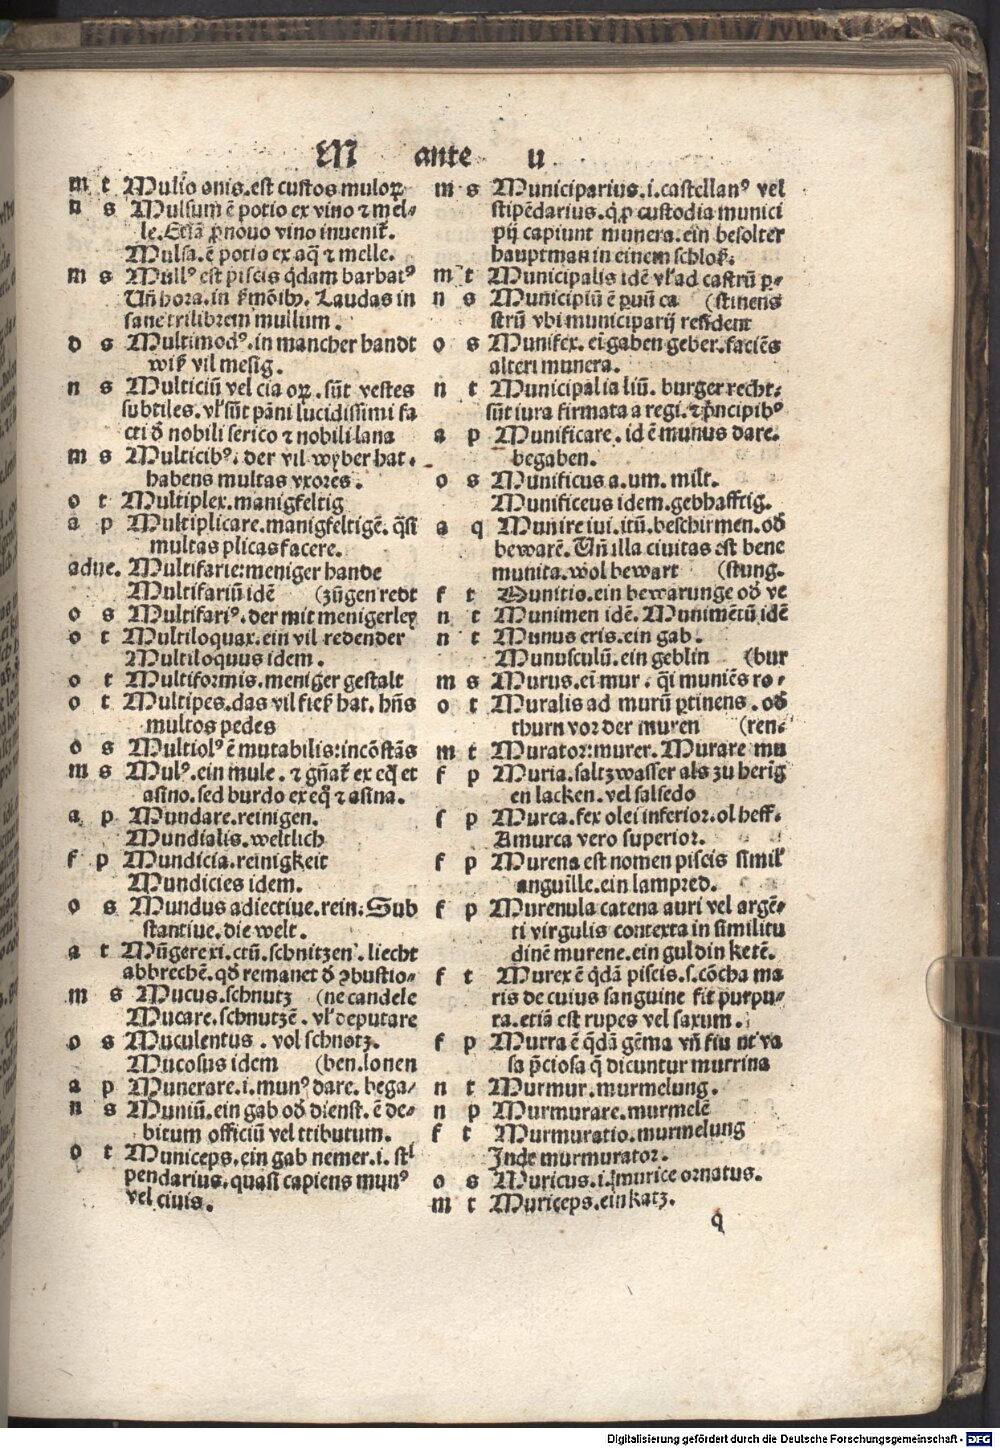 M ante u
m t Mulio onis.est custos muloꝝ
n s Mulsum ē potio ex vino ⁊ mel-
le.Etiā ꝓ nouo vino inuenit̄.
Mulsa.ē potio ex aq̄ ⁊ melle.
m s Mullꝰ est piscis q̇dam barbatꝰ
Uñ hora.in ẜmōibꝫ. Laudas in
sane trilibrem mullum.
o s Multimodꝰ.in mancher handt
wiß vil mesig.
n s Multiciū vel cia oꝝ. sūt vestes
subtiles.vl' sūt pāni lucidissimi fa
cti d̄ nobili serico ⁊ nobili lana
m s Multicibꝰ. der vil wyber hat.
habens multas vxores.
o t Multiplex.manigfeltig
a p Multiplicare.manigfeltigē. q̄si
multas plicas facere.
adue. Multifarie:meniger hande
Multifariū idē (zūgen redt
o s Multifariꝰ.der mit menigerley
o t Multiloquax.ein vil redender
Multiloquus idem.
o t Multiformis.meniger gestalt
o t Multipes.das vil fieß hat. hñs
multos pedes
o s Multiolꝰ ē mutabilis:incōstās
m s Mulꝰ.ein mule. ⁊ gñat̄ ex eq̄ et
asino.sed burdo ex eq̄ ⁊ asina.
a p Mundare.reinigen.
Mundialis.weltlich
f p Mundicia.reinigkeit
Mundicies idem.
o s Mundus adiectiue.rein:Sub
stantiue.die welt.
a t Mūgere xi.ctū.schnitzen. liecht
abbrechē.qd̄ remanet d̄ ↄbustio-
m s Mucus.schnutz (ne candele
Mucare.schnutzē. vl' deputare
o s Muculentus. vol schnotz.
Mucosus idem (ben.lonen
a p Munerare.i.munꝰ dare. bega-
n s Muniū.ein gab od̄ dienst.ē de-
bitum officiū vel tributum.
o t Municeps.ein gab nemer.i. sti
pendarius.quasi capiens munꝰ
vel ciuis.
m s Municiparius.i.castellanꝰ vel
stipēdarius.q̇ ꝓ custodia munici
pij capiunt munera.ein besolter
hauptman in einem schloß.
m t Municipalis idē vl' ad castrū ꝑ-
n s Municipiū ē ꝑuū ca (tinens
strū vbi municiparij resident
o s Munifex. ei gaben geber.faciēs
alteri munera.
n t Municipalia liū. burger recht.
sūt iura firmata a regi.⁊ p̄ncipibꝰ
a p Munificare.id ē munus dare.
begaben.
o s Munificus a.um. milt.
Munificeus idem.gebhafftig.
a q Munire iui.itū.beschirmen.od̄
bewarē.Uñ illa ciuitas est bene
munita.wol bewart (stung.
f t Munitio.ein bewarunge od̄ ve
n t Munimen idē. Munimētū idē
n t Munus eris.ein gab.
Munusculū.ein geblin (bur
m s Murus.ei mur. q̇i muniēs ro-
o t Muralis ad murū ꝑtinens. od̄
thurn vor der muren (ren.
m t Murator:murer. Murare mu
f p Muria.saltzwasser als zu herīg
en lacken.vel salsedo
f p Murca.fex olei inferior.ol heff.
Amurca vero superior.
f p Murena est nomen piscis simil'
anguille.ein lampred.
f p Murenula catena auri vel argē-
ti virgulis contexta in similitu
dinē murene.ein guldin ketē.
f t Murex ē q̇dā piscis.s.cōcha ma
ris de cuius sanguine fit purpu-
ra.etiā est rupes vel saxum.
f p Murra ē q̄dā gēma vñ fiunt va
sa p̄ciosa q̄ dicuntur murrina
n t Murmur.murmelung.
n p Murmurare.murmelē
f t Murmuratio.murmelung
Inde murmurator.
o s Muricus.i.murice ornatus.
m t Muriceps.ein katz.
q
Digitalisierung gefördert durch die Deutsche Forschungsgemeinschaft - DFG